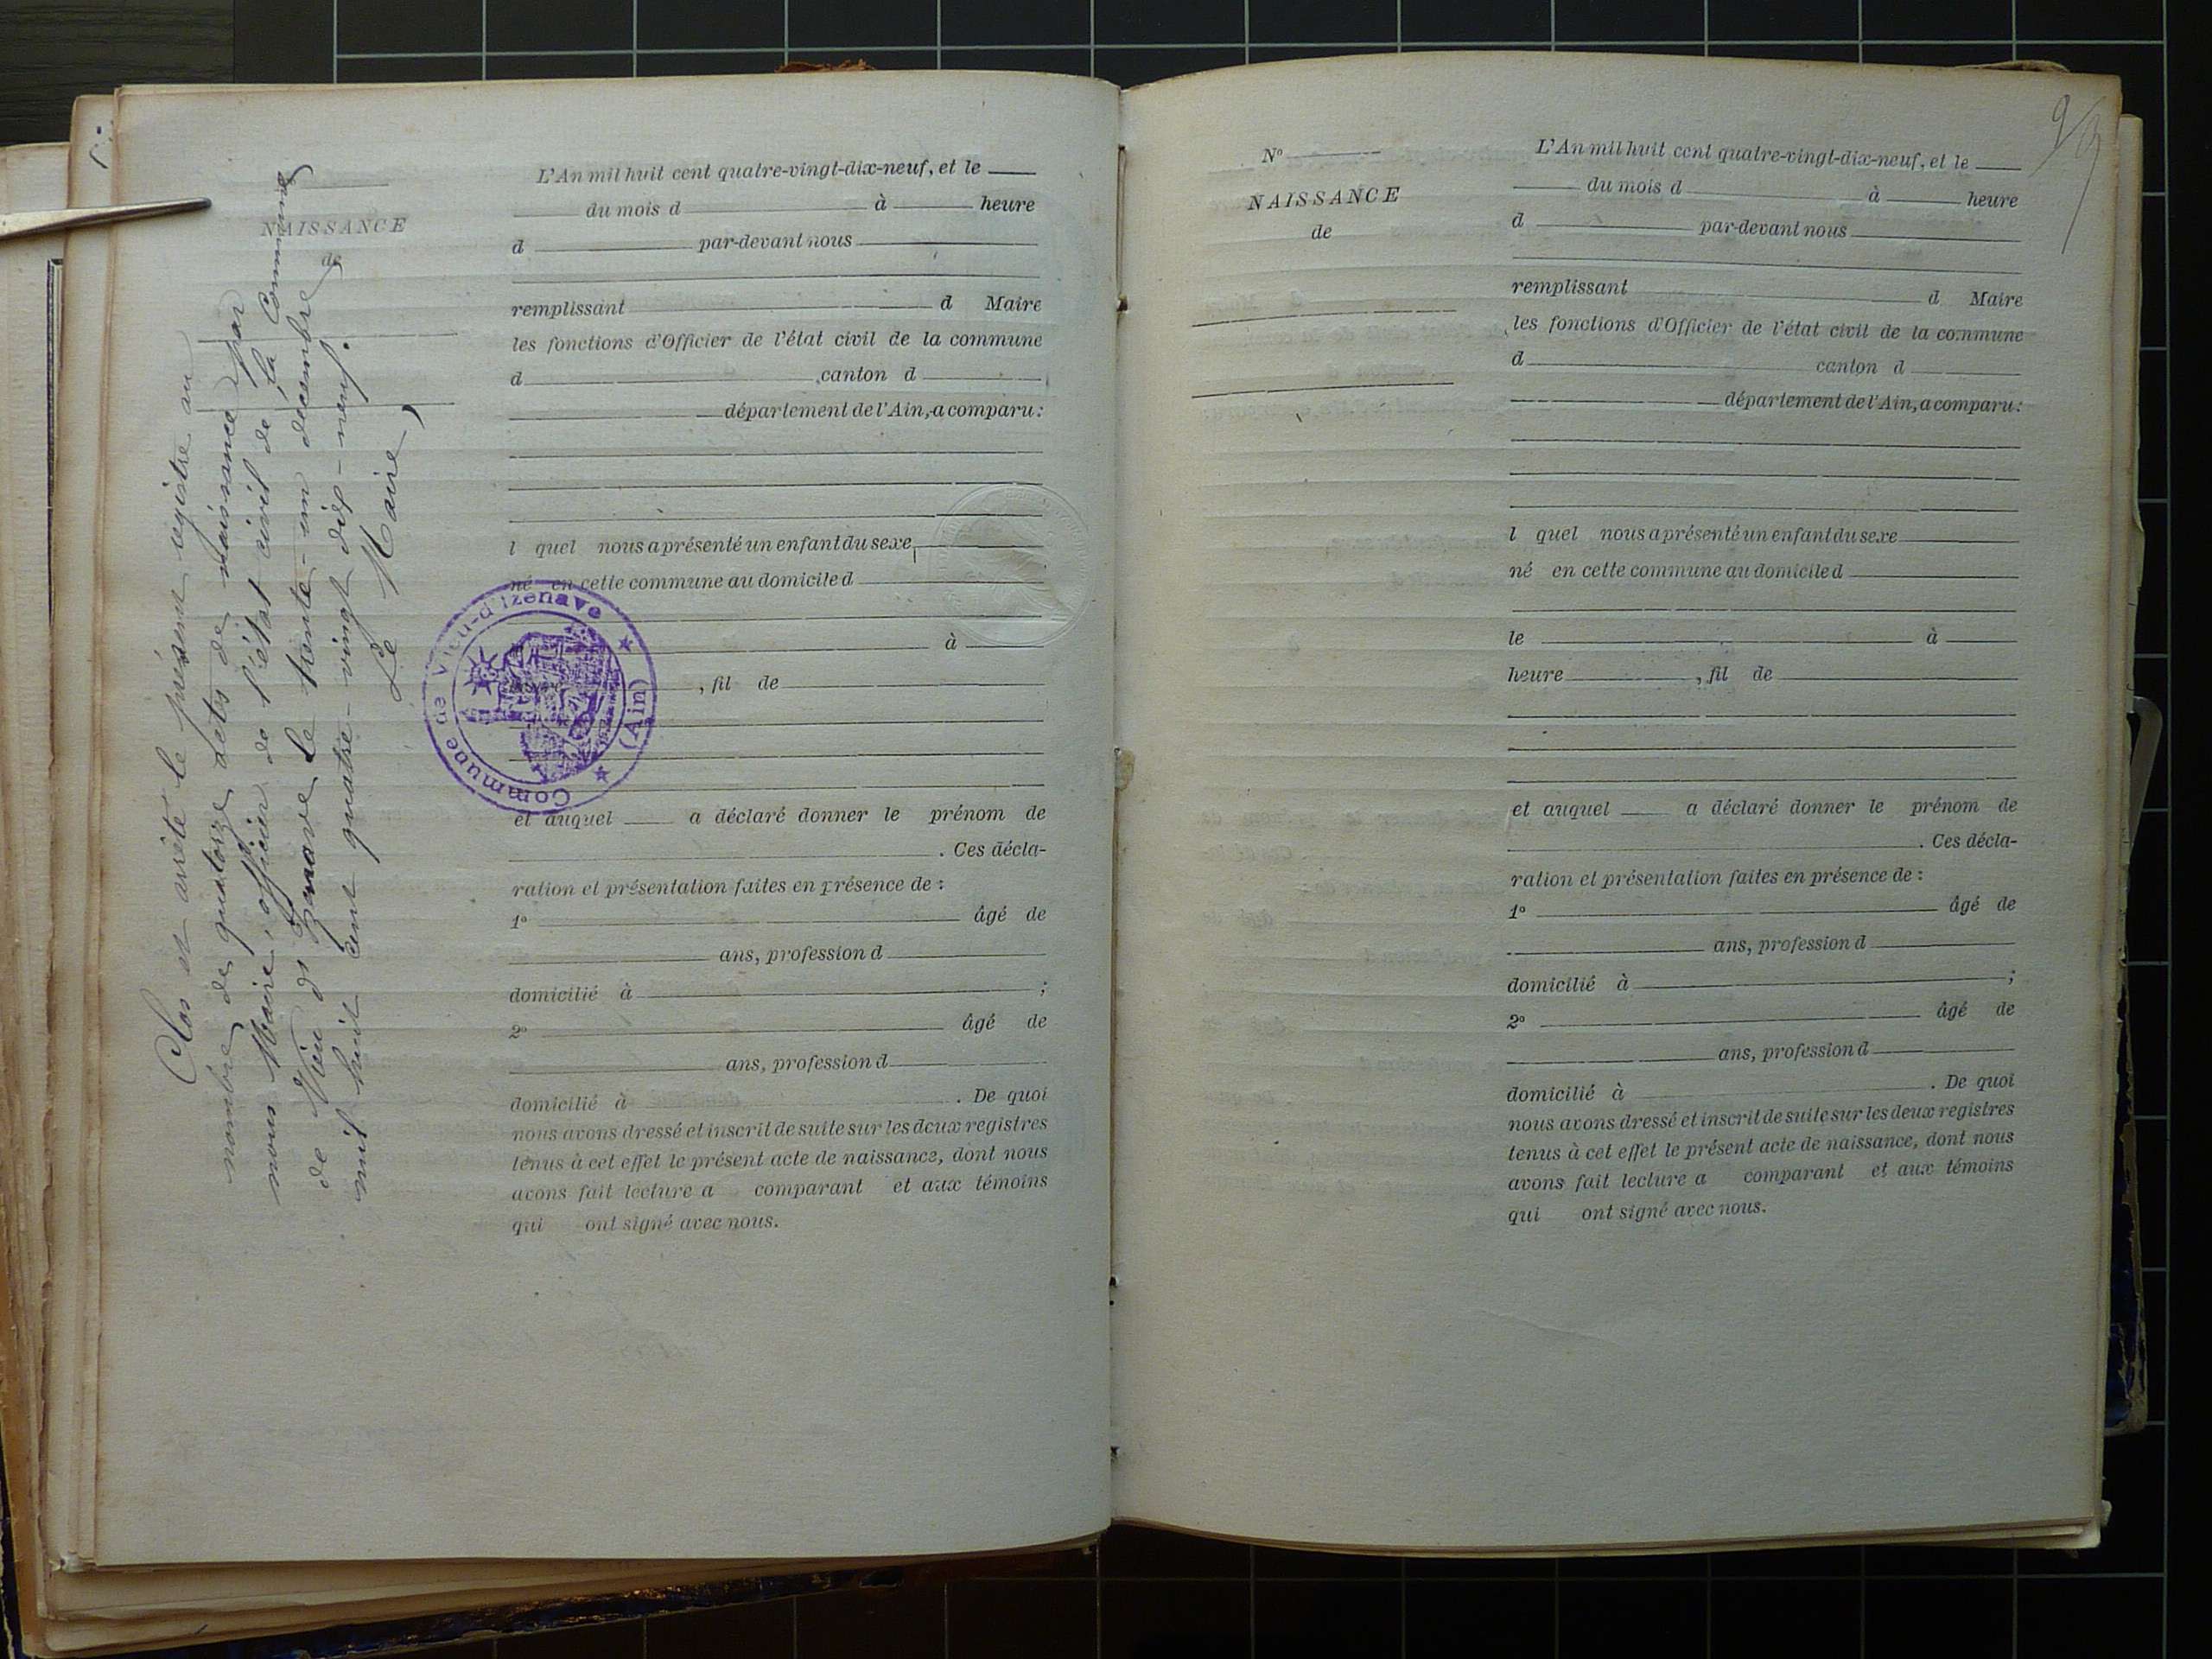 Clos et arrêté le présent registre au
nombre de quatorze actes de naissance par
nous Maire, officier de l'état civil de la Commune
de Vieu d'Izenave le trente-un décembre
mil huit cent quatre-vingt dix-neuf.
Le Maire,
NAISSANCE
de
L'An mil huit cent quatre-vingt-dix-neuf, et le
du mois d à heure
d par-devant nous
remplissant d Maire
les fonctions d'Officier de l'état civil de la commune
d canton d
département de l'Ain, a comparu:
l quel nous a présenté un enfant du sexe
né en cette commune au domicile d
à
, fil de
et auquel a déclaré donner le prénom de
. Ces décla-
ration et présentation faites en présence de :
1° âgé de
ans, profession d
domicilié à ;
2° âgé de
ans, profession d
domicilié à . De quoi
nous avons dressé et inscrit de suite sur les deux registres
tenus à cet effet le présent acte de naissance, dont nous
avons fait lecture a comparant et aux témoins
qui ont signé avec nous.
Commune de Vieu-d'Izenave
(Ain)
9
N°
NAISSANCE
de
L'An mil huit cent quatre-vingt-dix-neuf, et le
du mois d à heure
d par-devant nous
remplissant d Maire
les fonctions d'Officier de l'état civil de la commune
d canton d
département de l'Ain, a comparu:
l quel nous a présenté un enfant du sexe
né en cette commune au domicile d
le à
heure , fil de
et auquel a déclaré donner le prénom de
. Ces décla-
ration et présentation faites en présence de :
1° âgé de
ans, profession d
domicilié à ;
2° âgé de
ans, profession d
domicilié à . De quoi
nous avons dressé et inscrit de suite sur les deux registres
tenus à cet effet le présent acte de naissance, dont nous
avons fait lecture a comparant et aux témoins
qui ont signé avec nous.